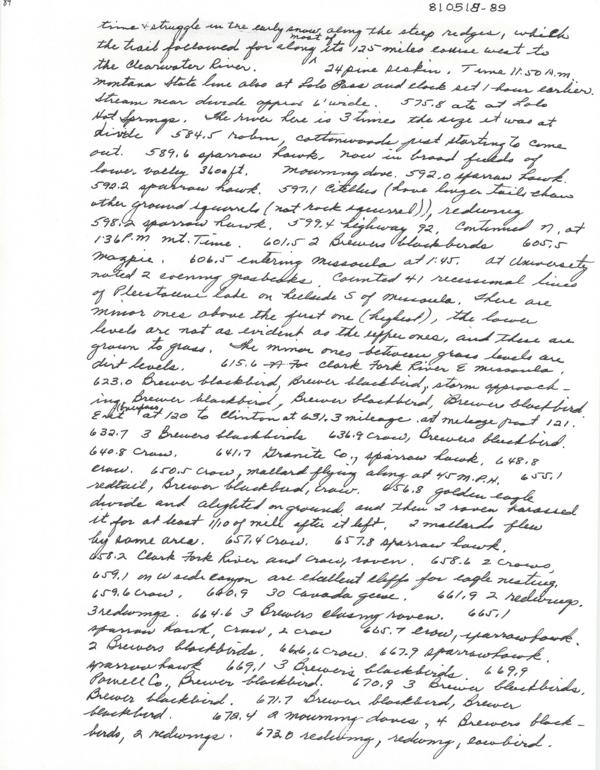 89
810518-89
time & struggle in the early snow, along the steep ridges, which
the trail followed for along most of its 125 miles course west to
the Clearwater River. 24 pine siskin. Time 11:50 A.M.
Montana State line also at Lolo Pass and clock set 1 hour earlier.
Stream near divide approx 6' wide. 575.8 ate at Lolo
Hot Springs. The river here is 3 times the size it was at
divide 584.5 robin, cottonwoods just starting to come
out. 589.6 sparrow hawk, now in broad fields of
lower valley 3600 ft. Mourning dove. 592.0 sparrow hawk.
592.2 sparrow hawk. 597.1 Citellus (have longer tails than
other ground squirrels (not rock squirrel)), redwing
598.2 sparrow hawk. 599.4 highway 92. Continued N. at
1:36 P.M. Mt. Time. 601.5 2 Brewers blackbirds 605.5
magpie. 606.5 entering Missoula at 1:45. At University
noted 2 evening grosbeaks. Counted 41 recessional lines
of Pleistocene lake on hillside S of Missoula. There are
minor ones above the first one (highest), the lower
levels are not as evident as the upper ones, and these are
grown to grass. The minor ones between grass levels are
dirt levels. 615.6 Clark Fork River E Missoula.
623.0 Brewer blackbird, Brewer blackbird, storm approach-
ing, Brewer blackbird, Brewer blackbird, Brewer blackbird.
Exit at 120 to Clinton at 631.3 mileage at mileage post 121.
632.7 3 Brewers blackbirds 636.9 crow, Brewers blackbird.
640.8 crow. 641.7 Granite Co., sparrow hawk. 648.8
crow. 650.5 crow, mallard flying along at 45 M.P.H. 655.1
redtail, Brewer blackbird, crow. 656.8 golden eagle
divide and alighted on ground, and then 2 raven harassed
it for at least 1/10 of mile after it left. 2 mallards flew
by same area. 657.4 crow. 657.8 sparrow hawk.
658.2 Clark Fork River and crow, raven. 658.6 2 crows,
659.1 on W side canyon are excellent cliffs for eagle nesting.
659.6 crow. 660.9 30 Canada geese. 661.9 2 redwings.
3 redwings. 664.6 3 Brewers chasing raven. 665.1
sparrow hawk, crow, 2 crow 665.7 crow, sparrow hawk.
2 Brewers blackbirds. 666.6 crow. 667.9 sparrow hawk.
sparrow hawk 669.1 3 Brewers blackbirds. 669.9
Powell Co., Brewer blackbird. 670.9 3 Brewer blackbirds.
Brewer blackbird. 671.7 Brewer blackbird, Brewer
blackbird. 672.4 2 mourning doves, 4 Brewers black-
birds, 2 redwings. 673.0 redwing, redwing, cowbird.